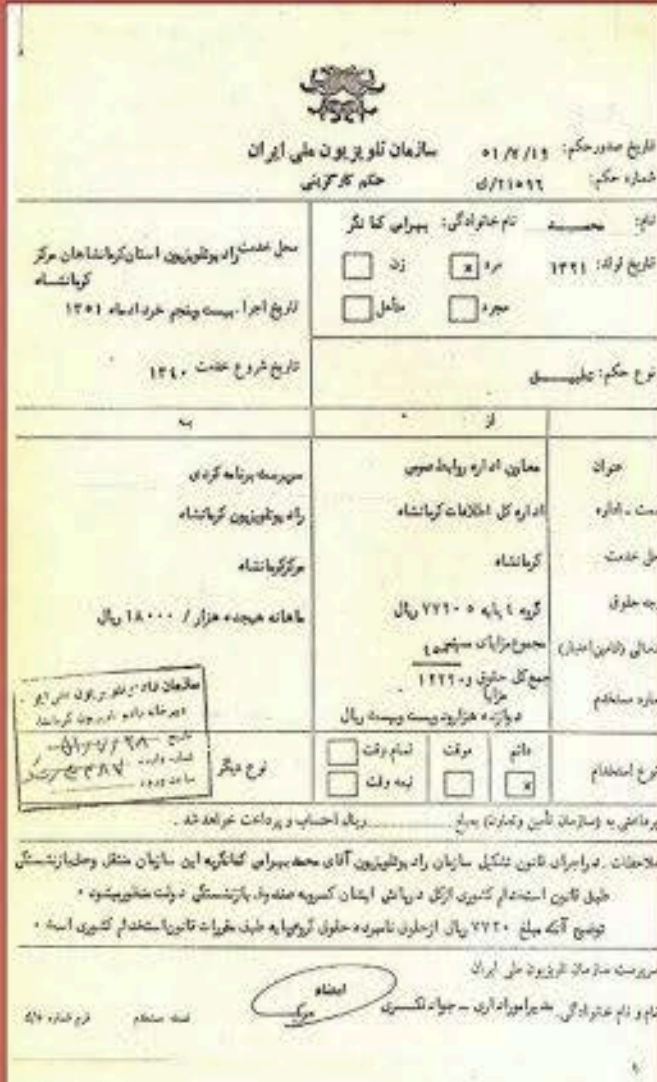 سازمان تلویزیون ملی ایران
حکم کارگزینی
تاریخ صدور حکم: ۵۱/۷/۱۹
شماره حکم: ۲۱۵۹۶/ک
نام: محمد نام خانوادگی: بهرامی کنانگر
تاریخ تولد: ۱۳۲۱ مرد x زن
مجرد متأهل
محل خدمت رادیوتلویزیون استان کرمانشاهان مرکز
کرمانشاه
تاریخ اجرا. بیست وپنجم خردادماه ۱۳۵۱
تاریخ شروع خدمت ۱۳۴۰
نوع حکم: تطبیق
از به
عنوان معاون اداره روابط عمومی سرپرست برنامه کردی
اداره کل اطلاعات کرمانشاه رادیوتلویزیون کرمانشاه
محل خدمت کرمانشاه مرکز کرمانشاه
گروه ٤ پایه ۵ ۷۷۲۰ ریال ماهانه هیجده هزار / ۱۸۰۰۰ ریال
مجموع مزایای
جمع کل حقوق و ۱۲۲۲۰
مزایا
دوازده هزارودویست وبیست ریال
نوع استخدام دائم x موقت تمام وقت
نیمه وقت
نوع دیگر
پرداختی به (سازمان تأمین وتعاون) بمبلغ ریال احتساب و پرداخت خواهد شد .
ملاحظات . دراجرای قانون تشکیل سازمان رادیوتلویزیون آقای محمد بهرامی کنانگر به این سازمان منتقل وحق بازنشستگی
طبق قانون استخدام کشوری ازکل دریافتی ایشان کسر و به صندوق بازنشستگی دولت منظور میشود .
توضیح آنکه مبلغ ۷۷۲۰ ریال ازحقوق نامبرده حقوق گروه وپایه طبق مقررات قانون استخدام کشوری است .
سرپرست سازمان تلویزیون ملی ایران
نام و نام خانوادگی مدیرامور اداری - جواد امضاء
نسخه مستخدم فرم شماره